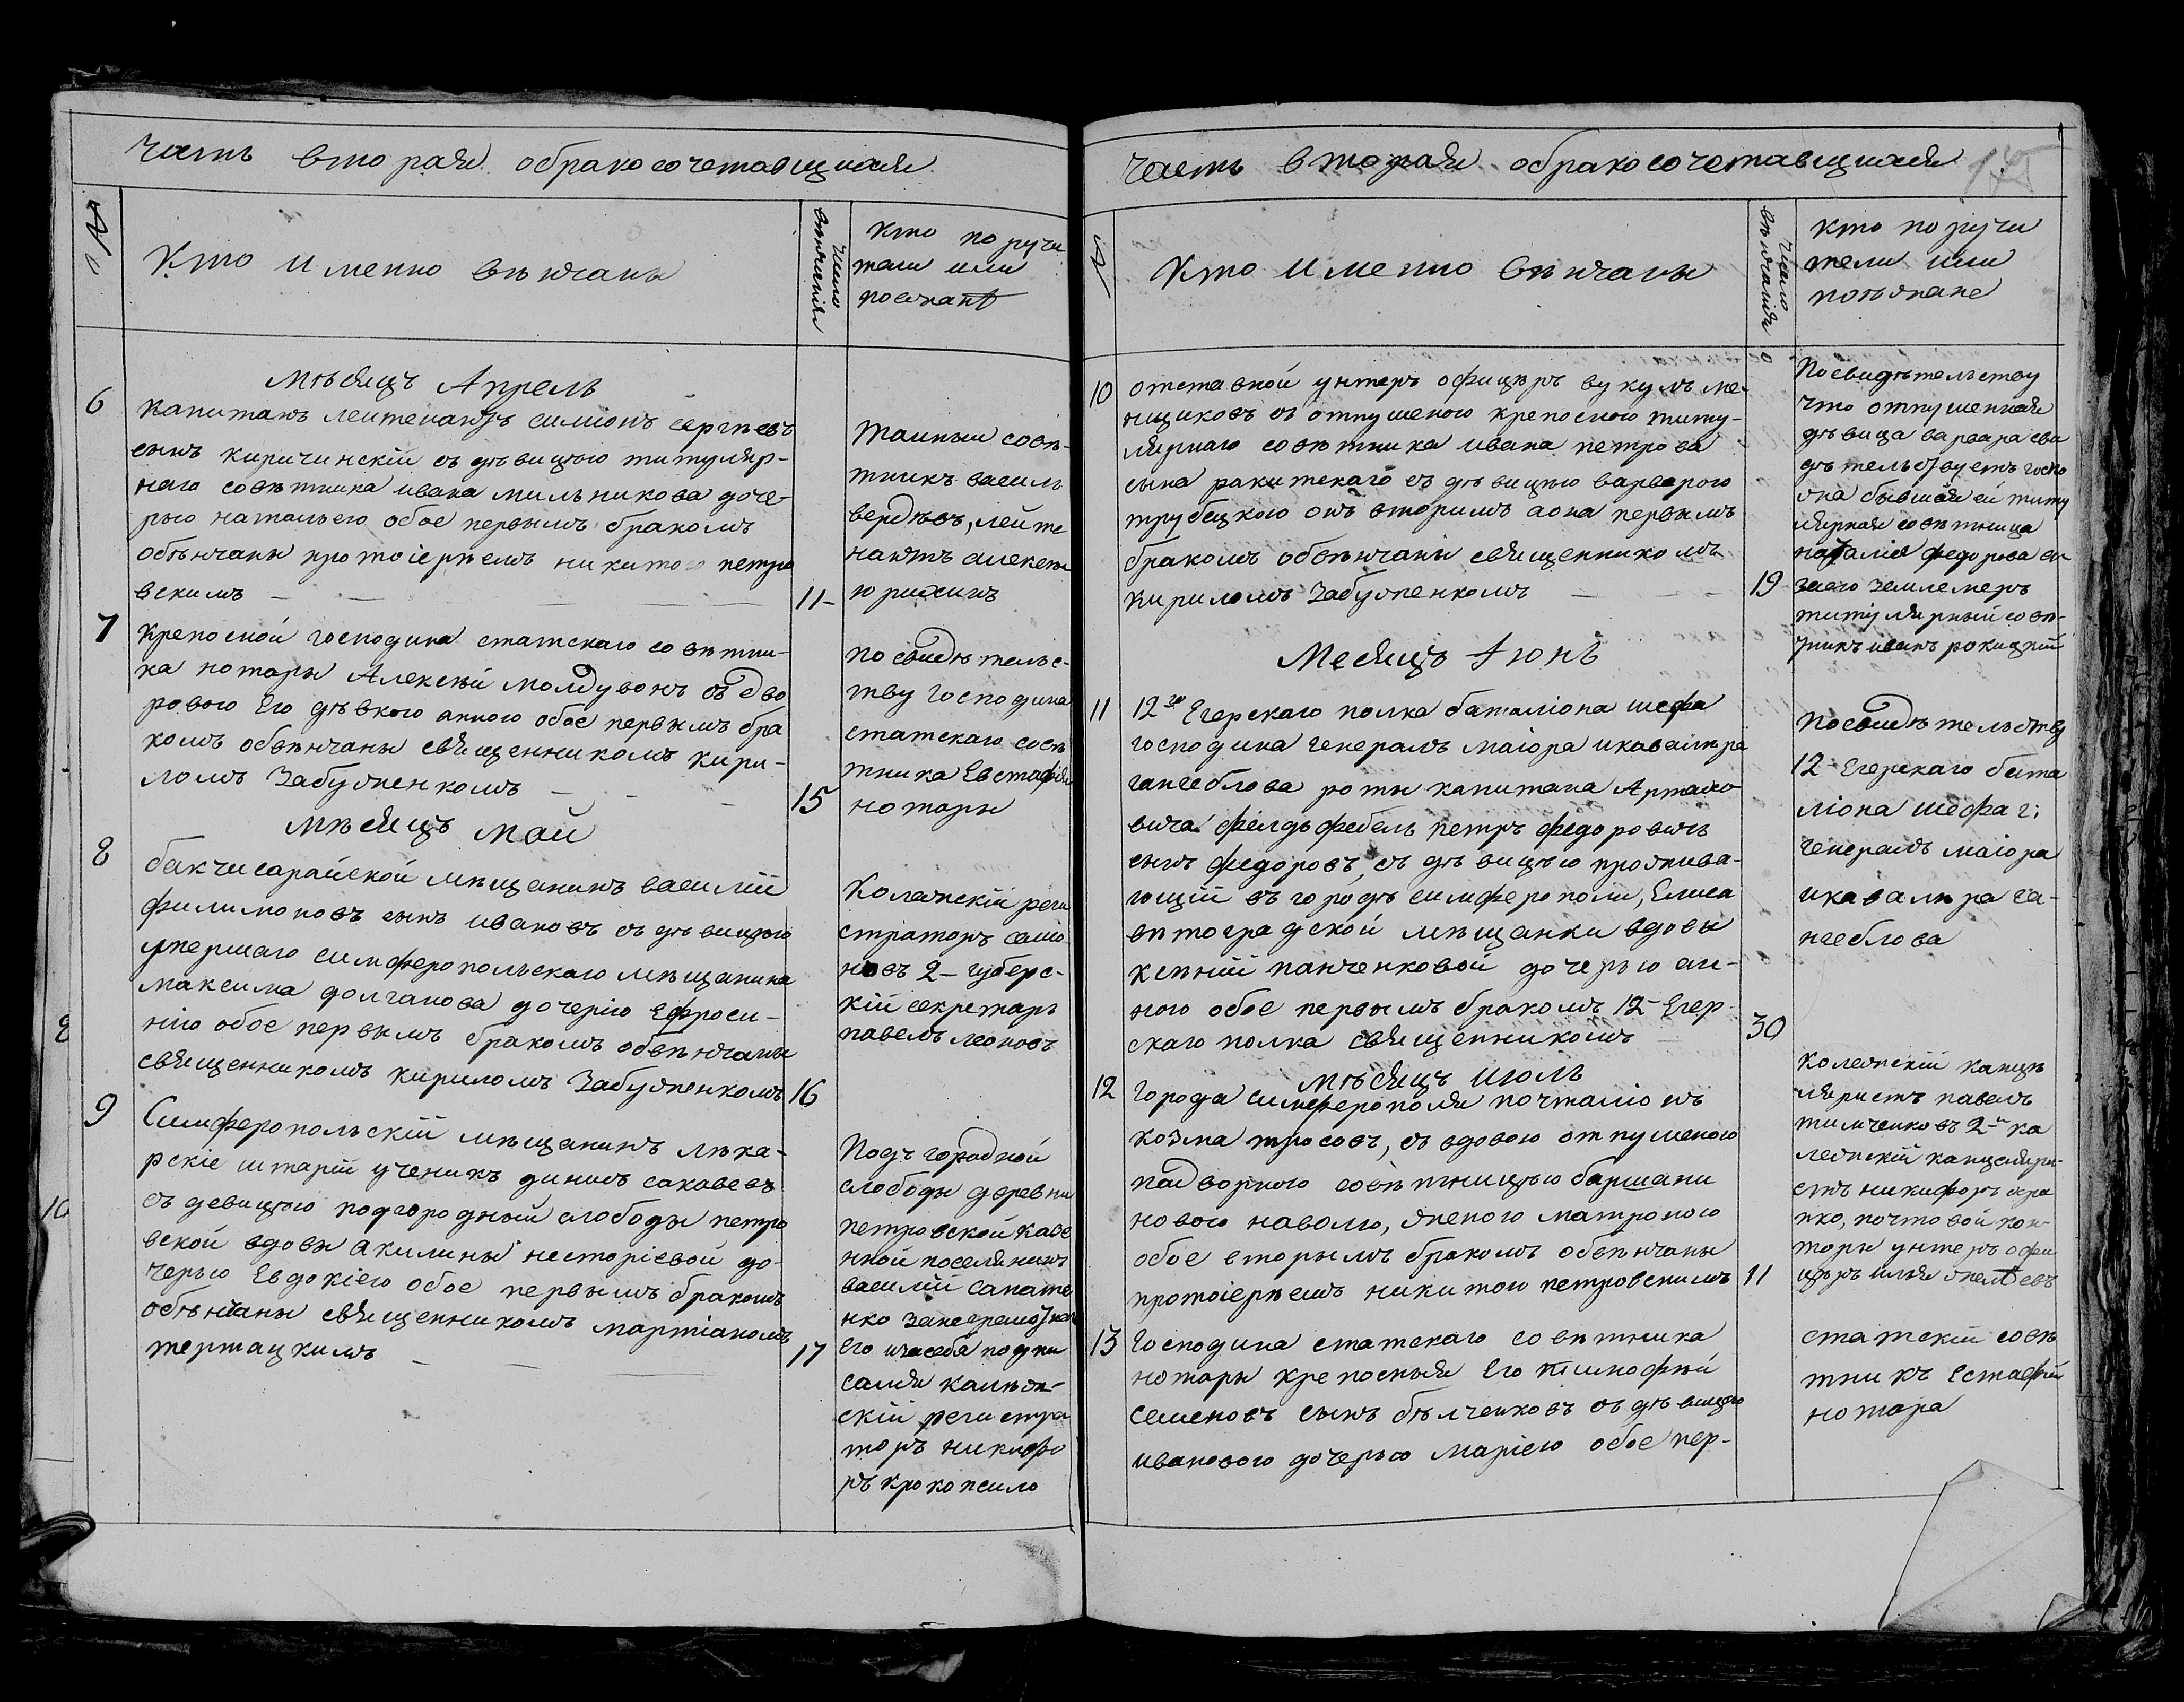 часть вторая обракосочетавщихся
№
Кто имепно вѣнчаны
число вѣнчания
кто поручи
тели или
поезжанѣ
Мѣсяцъ Апрель
6
капитанъ лейтенантъ симіонъ сергѣевъ
сынъ киричинскій съ дѣвицъю титуляр-
наго совѣтника ивана мильникова доче-
рью натальею обое первымъ бракомъ
обвѣнчаны протоіерѣемъ никитою петро
вскимъ
11
таиныи совѣ-
тникъ василь
лейте
нантъ алексѣи
юрихинъ
7
крепосной господина статскаго совѣтни-
ка нотары Алексѣй молдуванъ съ дво
ровою Его дѣвкою анною обое первымъ бра
комъ обвѣнчаны священникомъ кири-
ломъ Забужненкомъ
15
по свидѣтельс-
тву господина
статскаго совѣ
тника Евстафія
нотары
мѣсяцъ май
8
бакчисарайской мѣщанинъ василій
филимоновъ сынъ ивановъ съ дѣвицъю
умершаго симферопольскаго мѣщанина
максима долганова дочерію Ефроси-
нію обое первымъ бракомъ обвѣнчаны
священникомъ кириломъ Забужненкомъ
16
Колежскій реги
страторъ само
новъ 2- губерс-
кій секретарь
павелъ леоновъ
9
Симферопольскій мѣщанинъ лѣка-
рскіе штарій ученикъ
съ девицъю подгородный слободы петро
вской вдовы акилины несторіевой до-
черью Евдокіею обое первымъ бракомъ
обвѣнчаны священникомъ мартіаномъ
тертацкимъ
17
Подъ городной
слободы деревни
петровской казе
нной поселянинъ
василій сапате
нко
Его изасебя подпи
сался
скій регистра
торъ никифо
ръ
часть вторая обракосочетавщихся
№
Кто имепно вѣнчаны
число вѣнчания
кто поручи
тели или
поѣзжане
10
отставной унтеръ офицеръ вукулъ ме-
нщиковъ съ отпущеною крепосною титу-
лярнаго совѣтника ивана петрова
сына ракитскаго съ дѣвицъю варварою
трубецкою онъ вторимъ аона первымъ
бракомъ обвѣнчаны священникомъ
кириломъ Забужненкомъ
19
Посвидѣтельству
что отпущенная
дѣвица варвара сви
дѣтельствуетъ госпо
жа бывшая ей титу
лярная совѣтница
наталія федорова
землемеръ
титулярный совѣ-
тникъ иванъ рокицкий
Месяцъ Іюнь
11
12го Егерскаго полка баталіона шефа
господина генералъ маіора икавалѣра
гангеблова роты капитана
вича фелдьфебель петръ федоровичъ
сынъ федоровъ, съ дѣвицъю прожива-
ющій въ городѣ симферополи, Елиса
ветоградской мѣщанки вдовы
ксѣніи панченковой дочерью ан-
ною обое первымъ бракомъ 12 Егер-
скаго полка священникомъ
30
посвидѣтельству
12- Егерскаго бата
ліона шефа г:
генералъ маіора
икавалѣра га-
нгеблова
мѣсяцъ июль
12
города симферополя почталіонъ
козма тросовъ, съ вдовою отпущеною
надворною совѣтницъю баршани
новою наволю, женою матроною
обое вторымъ бракомъ обвѣнчаны
протоіерѣемъ никитою петровскимъ
11
колежскій канцѣ
ляристъ павелъ
тимченковъ 2- ка
лежскій канцеляри-
стъ никифоръ
почтовой кон-
торы унтеръ офи
церъ илья
13
Господина статскаго совѣтника
нотары крепосныя Его тимофѣй
семеновъ сынъ бѣлченковъ съ дѣвицъю
ивановою дочерью маріею обое пер-
статскій совѣ
тникъ Естафій
нотара